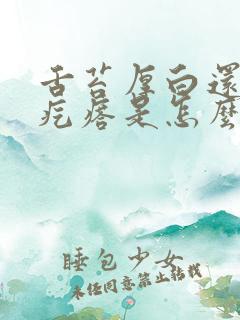 舌苔厚白還
疙瘩是怎麼
睡包少女
未经同意禁止转载